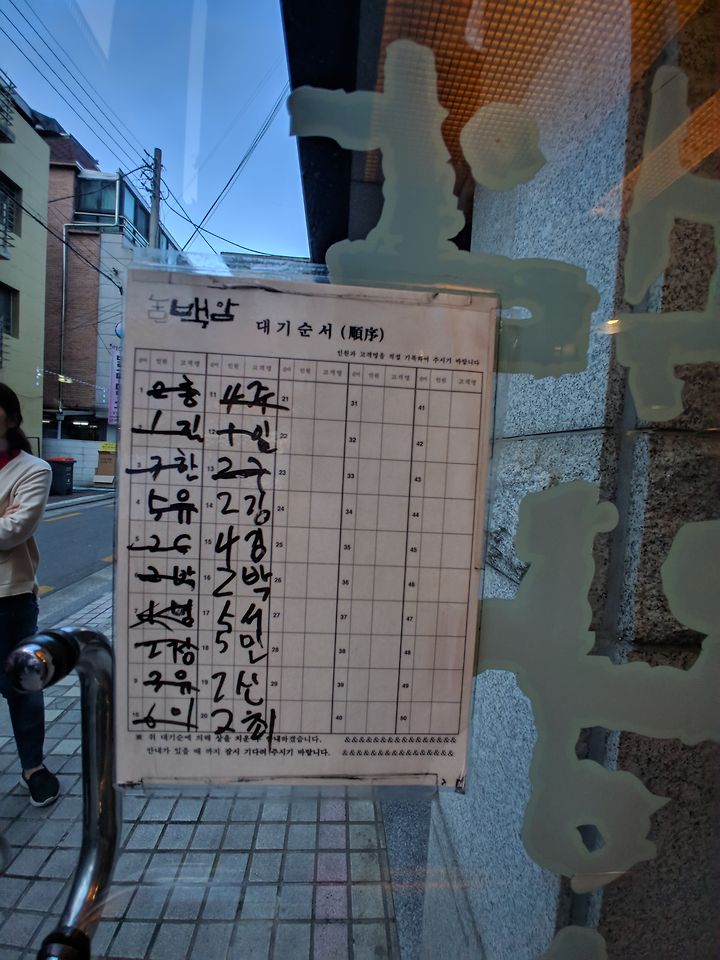 백암
대기순서(順序)
인원과 고객명을 직접 기록하여 주시기 바랍니다
순서 인원 고객명 순서 인원 고객명 순서 인원 고객명 순서 인원 고객명 순서 인원 고객명
1 2 홍 11 4 주 21 31 41
1 진 12 1 임 22 32 42
3 한 13 2 구 23 33 43
4 5 유 14 2 김 24 34 44
5 2 G 15 4 김 25 35 45
2 박 16 2 박 26 36 46
7 17 5 서 27 37 47
장 18 5 민 28 38 48
9 3 유 19 2 신 29 39 49
10 6 이 20 2 최 30 40 50
※ 위 대기순에 의해 상을 치운 안내하겠습니다. &&&&&&&&&&&&&&&&
안내가 있을 때 까지 잠시 기다려 주시기 바랍니다. &&&&&&&&&&&&&&&&